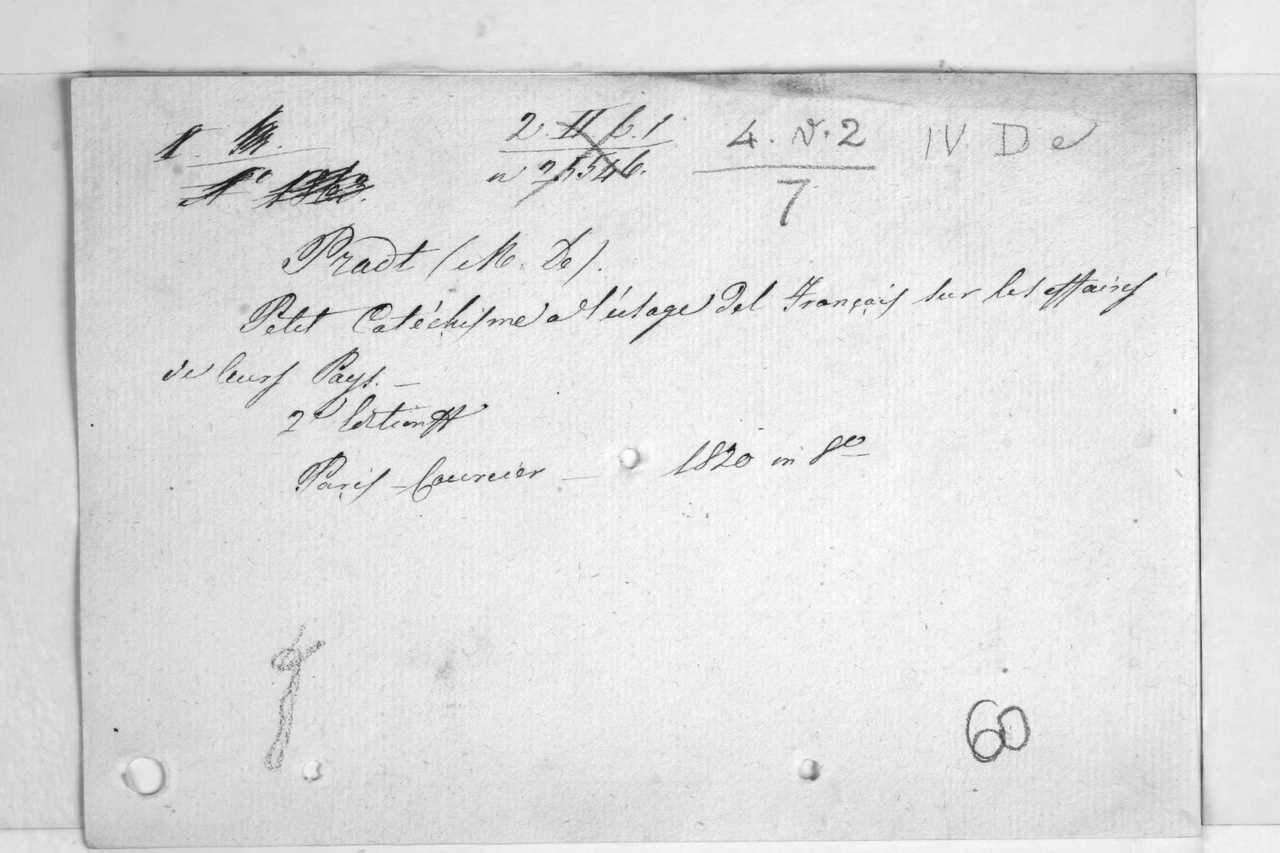 2. II b. 1
n 25546.
4. N. 2
7
IV. D e
Pradt (M. De).
Petit Catéchisme a l'usage des Français sur les affaires
de leurs Pays. —
2e Edition
Paris — Courcier — 1820 in 8vo
60